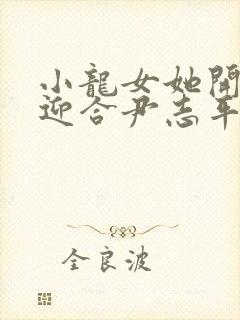 小龍女她開
迎合尹志平
全良波